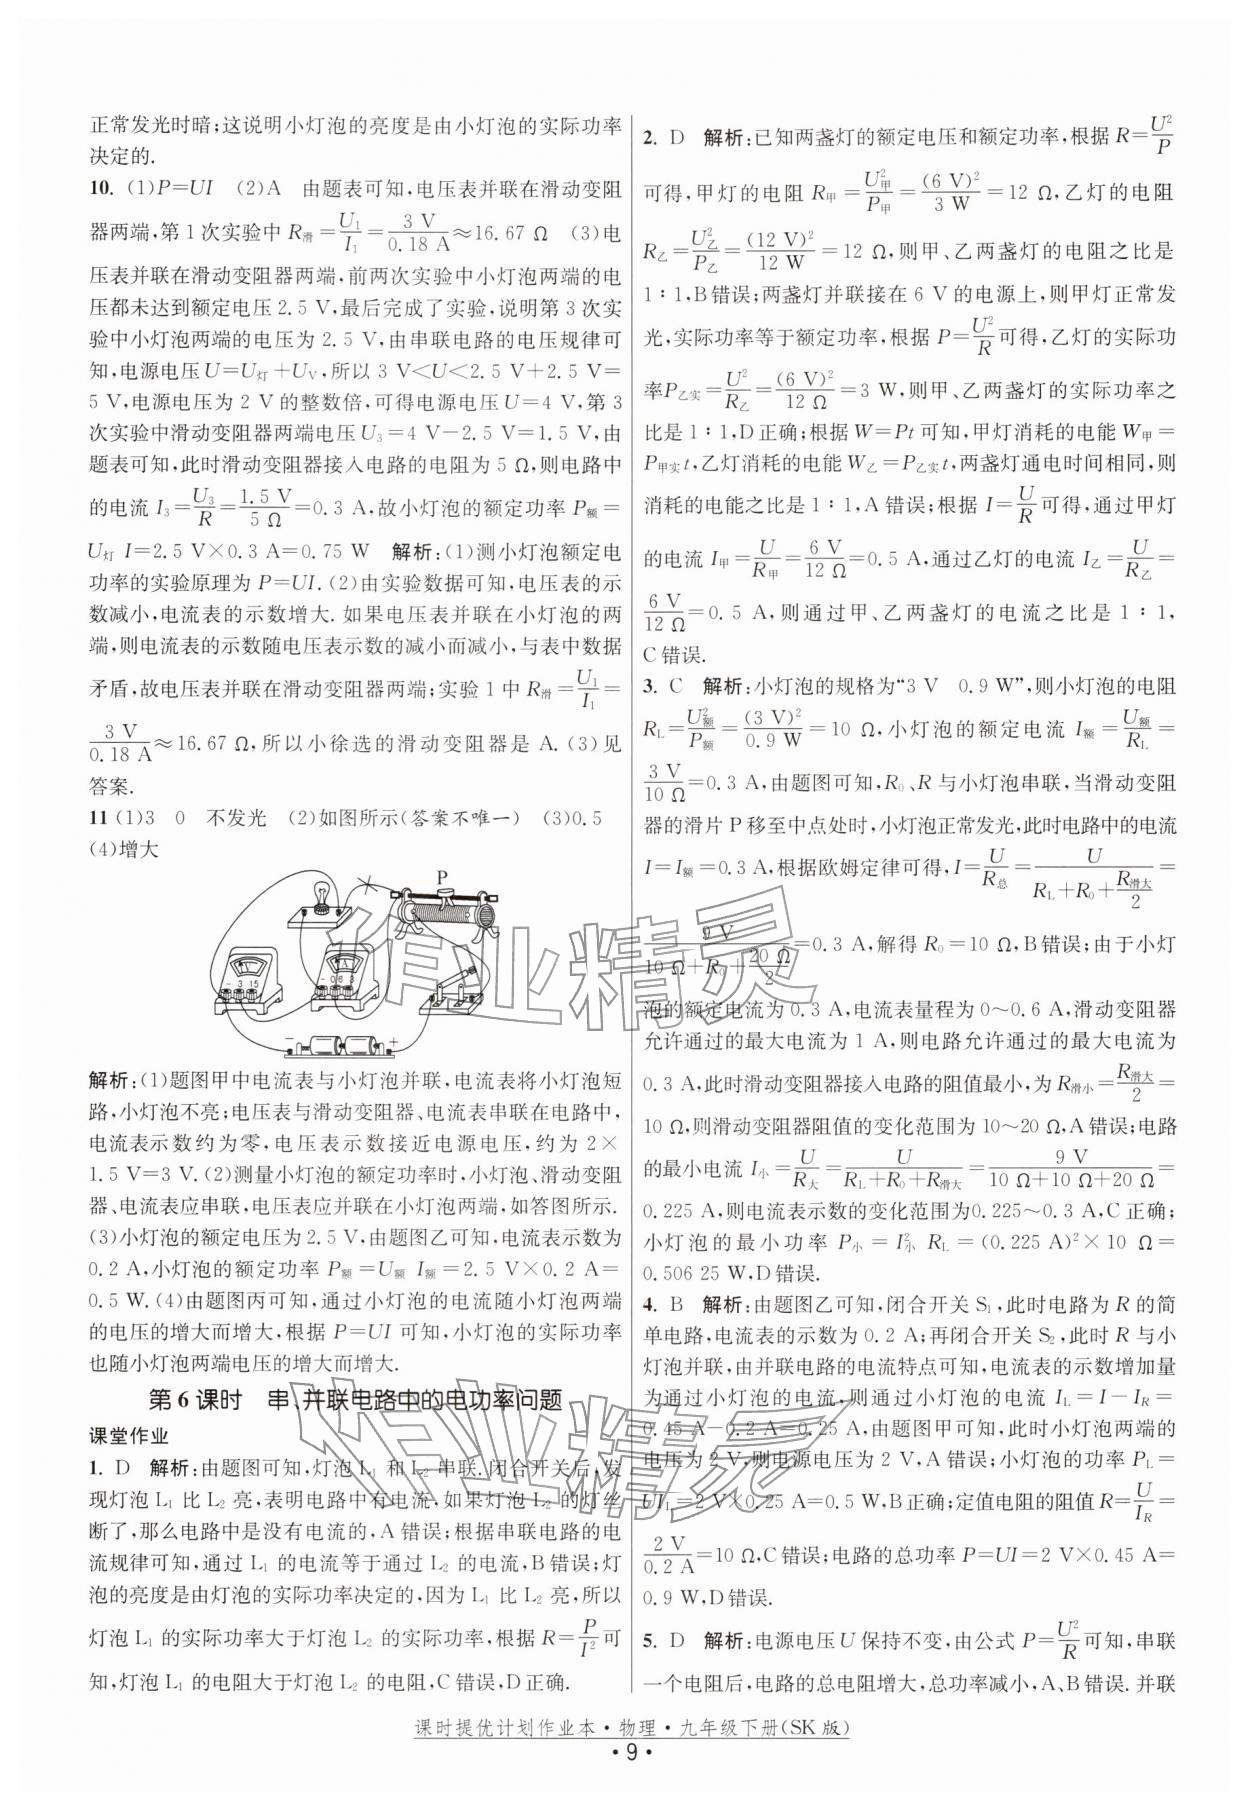 正常发光时暗;这说明小灯泡的亮度是由小灯泡的实际功率
决定的.
10. (1)P=UI (2)A 由题表可知,电压表并联在滑动变阻
器两端,第1次实验中 R滑=U₁/I₁=3 V/0.18 A≈16.67 Ω (3)电
压表并联在滑动变阻器两端,前两次实验中小灯泡两端的电
压都未达到额定电压2.5 V,最后完成了实验,说明第3次实
验中小灯泡两端的电压为2.5 V,由串联电路的电压规律可
知,电源电压U=U灯+UV,所以3 V<U<2.5 V+2.5 V=
5 V,电源电压为2 V的整数倍,可得电源电压U=4 V,第3
次实验中滑动变阻器两端电压U₃=4 V−2.5 V=1.5 V,由
题表可知,此时滑动变阻器接入电路的电阻为5 Ω,则电路中
的电流 I₃=U₃/R=1.5 V/5 Ω=0.3 A,故小灯泡的额定功率 P额=
U灯 I=2.5 V×0.3 A=0.75 W 解析:(1)测小灯泡额定电
功率的实验原理为P=UI.(2)由实验数据可知,电压表的示
数减小,电流表的示数增大.如果电压表并联在小灯泡的两
端,则电流表的示数随电压表示数的减小而减小,与表中数据
矛盾,故电压表并联在滑动变阻器两端;实验1中 R滑=U₁/I₁=
3 V/0.18 A≈16.67 Ω,所以小徐选的滑动变阻器是 A.(3)见
答案.
11 (1)3 0 不发光 (2)如图所示(答案不唯一) (3)0.5
(4)增大
P
− 3 15
A
− 0.6 3
− +
解析:(1)题图甲中电流表与小灯泡并联,电流表将小灯泡短
路,小灯泡不亮;电压表与滑动变阻器、电流表串联在电路中,
电流表示数约为零,电压表示数接近电源电压,约为2×
1.5 V=3 V.(2)测量小灯泡的额定功率时,小灯泡、滑动变阻
器、电流表应串联,电压表应并联在小灯泡两端,如答图所示.
(3)小灯泡的额定电压为2.5 V,由题图乙可知,电流表示数为
0.2 A,小灯泡的额定功率 P额=U额 I额=2.5 V×0.2 A=
0.5 W.(4)由题图丙可知,通过小灯泡的电流随小灯泡两端
的电压的增大而增大,根据 P=UI 可知,小灯泡的实际功率
也随小灯泡两端电压的增大而增大.
第6课时 串、并联电路中的电功率问题
课堂作业
1. D 解析:由题图可知,灯泡L₁和L₂串联.闭合开关后,发
现灯泡L₁比L₂亮,表明电路中有电流,如果灯泡L₂的灯丝
断了,那么电路中是没有电流的,A错误;根据串联电路的电
流规律可知,通过L₁的电流等于通过L₂的电流,B错误;灯
泡的亮度是由灯泡的实际功率决定的,因为L₁比L₂亮,所以
灯泡L₁的实际功率大于灯泡L₂的实际功率,根据R=P/I²可
知,灯泡L₁的电阻大于灯泡L₂的电阻,C错误,D正确.
2. D 解析:已知两盏灯的额定电压和额定功率,根据R=U²/P
可得,甲灯的电阻 R甲=U²甲/P甲=(6 V)²/3 W=12 Ω,乙灯的电阻
R乙=U²乙/P乙=(12 V)²/12 W=12 Ω,则甲、乙两盏灯的电阻之比是
1∶1,B错误;两盏灯并联接在6 V的电源上,则甲灯正常发
光,实际功率等于额定功率,根据P=U²/R可得,乙灯的实际功
率P乙实=U²/R乙=(6 V)²/12 Ω=3 W,则甲、乙两盏灯的实际功率之
比是1∶1,D正确;根据W=Pt可知,甲灯消耗的电能W甲=
P甲实t,乙灯消耗的电能W乙=P乙实t,两盏灯通电时间相同,则
消耗的电能之比是1∶1,A错误;根据I=U/R可得,通过甲灯
的电流 I甲=U/R甲=6 V/12 Ω=0.5 A,通过乙灯的电流 I乙=U/R乙=
6 V/12 Ω=0.5 A,则通过甲、乙两盏灯的电流之比是1∶1,
C错误.
3. C 解析:小灯泡的规格为“3 V 0.9 W”,则小灯泡的电阻
RL=U²额/P额=(3 V)²/0.9 W=10 Ω,小灯泡的额定电流 I额=U额/RL=
3 V/10 Ω=0.3 A,由题图可知,R₀、R与小灯泡串联,当滑动变阻
器的滑片P移至中点处时,小灯泡正常发光,此时电路中的电流
I=I额=0.3 A,根据欧姆定律可得,I=U/R总=U/(RL+R₀+R滑大/2)=
9 V/(10 Ω+R₀+20 Ω/2)=0.3 A,解得R₀=10 Ω,B错误;由于小灯
泡的额定电流为0.3 A,电流表量程为0~0.6 A,滑动变阻器
允许通过的最大电流为1 A,则电路允许通过的最大电流为
0.3 A,此时滑动变阻器接入电路的阻值最小,为R滑小=R滑大/2=
10 Ω,则滑动变阻器阻值的变化范围为10~20 Ω,A错误;电路
的最小电流 I小=U/R大=U/(RL+R₀+R滑大)=9 V/(10 Ω+10 Ω+20 Ω)=
0.225 A,则电流表示数的变化范围为0.225~0.3 A,C正确;
小灯泡的最小功率 P小=I²小 RL=(0.225 A)²×10 Ω=
0.506 25 W,D错误.
4. B 解析:由题图乙可知,闭合开关S₁,此时电路为R的简
单电路,电流表的示数为0.2 A;再闭合开关S₂,此时R与小
灯泡并联,由并联电路的电流特点可知,电流表的示数增加量
为通过小灯泡的电流,则通过小灯泡的电流 IL=I−IR=
0.45 A−0.2 A=0.25 A,由题图甲可知,此时小灯泡两端的
电压为2 V,则电源电压为2 V,A错误;小灯泡的功率PL=
UIL=2 V×0.25 A=0.5 W,B正确;定值电阻的阻值R=U/IR=
2 V/0.2 A=10 Ω,C错误;电路的总功率P=UI=2 V×0.45 A=
0.9 W,D错误.
5. D 解析:电源电压U保持不变,由公式P=U²/R可知,串联
一个电阻后,电路的总电阻增大,总功率减小,A、B错误.并联
课时提优计划作业本·物理·九年级下册(SK版)
·9·
作业精灵
作业精灵